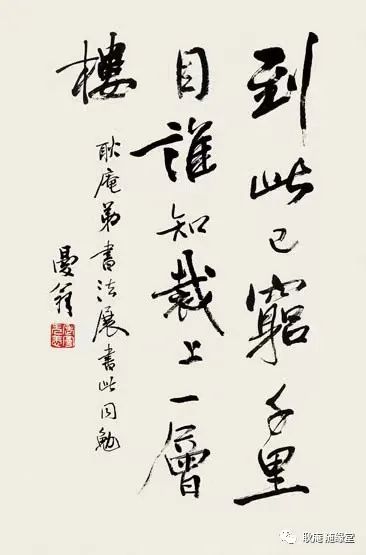 到此已窮千里
目誰知裁上一層
樓
耿庵弟書法展書此同勉
曼翁
耿庵 随缘堂